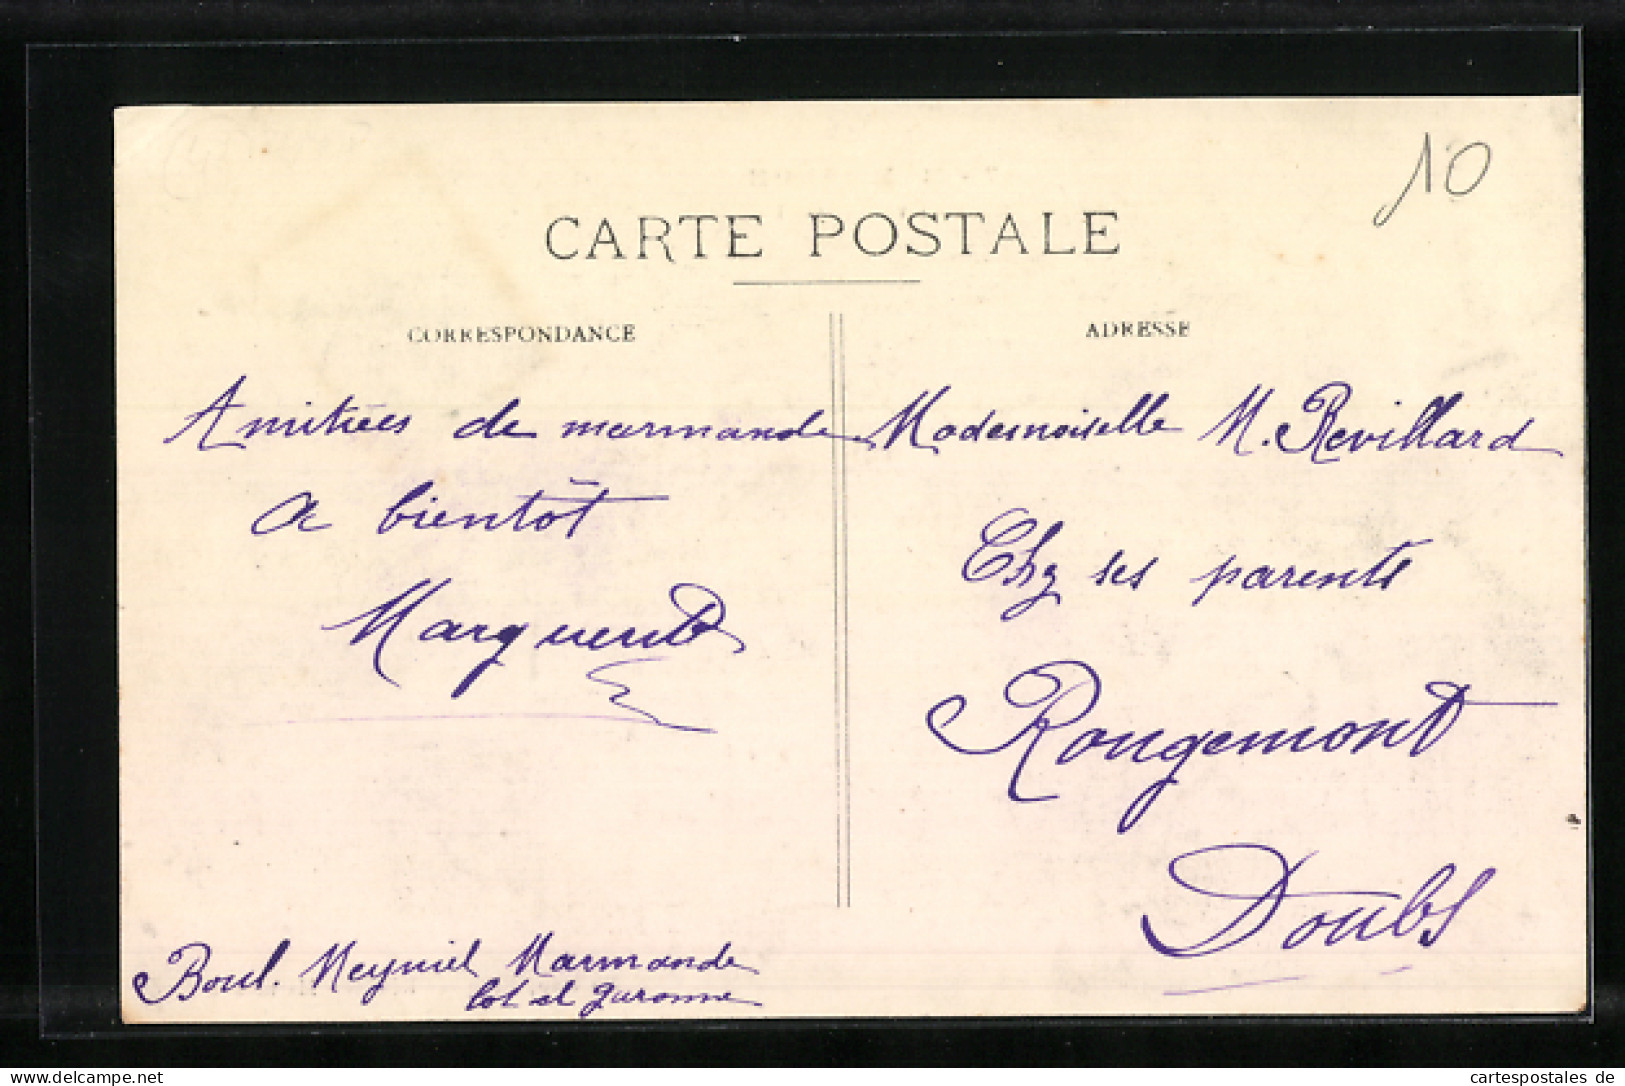 10
CARTE POSTALE
CORRESPONDANCE
Amitiées de marmande
a bientôt
Marguerite
Boul. Meyniel Marmande
Lot et garonne
ADRESSE
Mademoiselle M. Revillard
Chz ses parents
Rougemont
Doubs
www.delcampe.net
cartespostales de